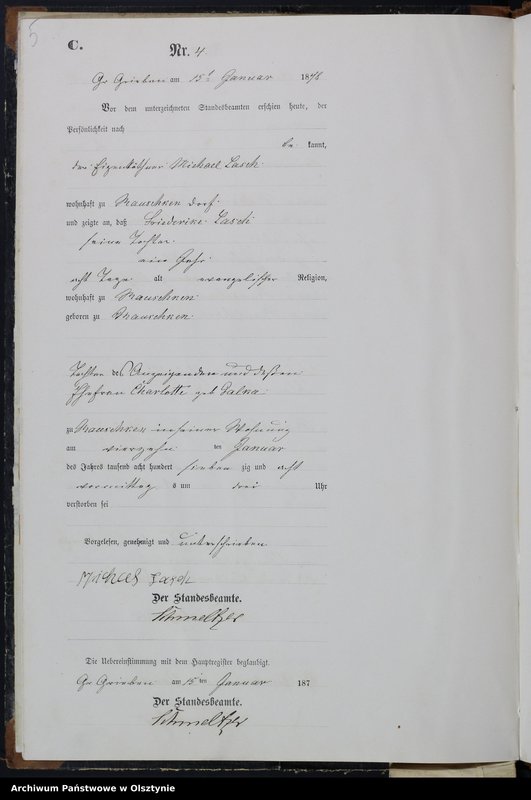 5
C.
Nr. 4
Gr Grieben am 15t Januar 1878
Vor dem unterzeichneten Standesbeamten erschien heute, der
Persönlichkeit nach
be kannt,
der Eigenkäthner Michael Lasch
wohnhaft zu Mauschken dorf
und zeigte an, daß Friederike Lasch
seine Tochter
ein Jahr
acht Tage alt evangelischer Religion,
wohnhaft zu Mauschken
geboren zu Mauschken
Tochter des Anzeigenden und dessen
Ehefrau Charlotte geb Salka
zu Mauschken in seiner Wohnung
am vierzehn ten Januar
des Jahres tausend acht hundert sieben zig und acht
vormittag s um drei Uhr
verstorben sei
Vorgelesen, genehmigt und unterschrieben
Michael Lasch
Der Standesbeamte.
Schmeltzer
Die Uebereinstimmung mit dem Hauptregister beglaubigt.
Gr Grieben am 15 ten Januar 187
Der Standesbeamte.
Schmeltzer
Archiwum Państwowe w Olsztynie